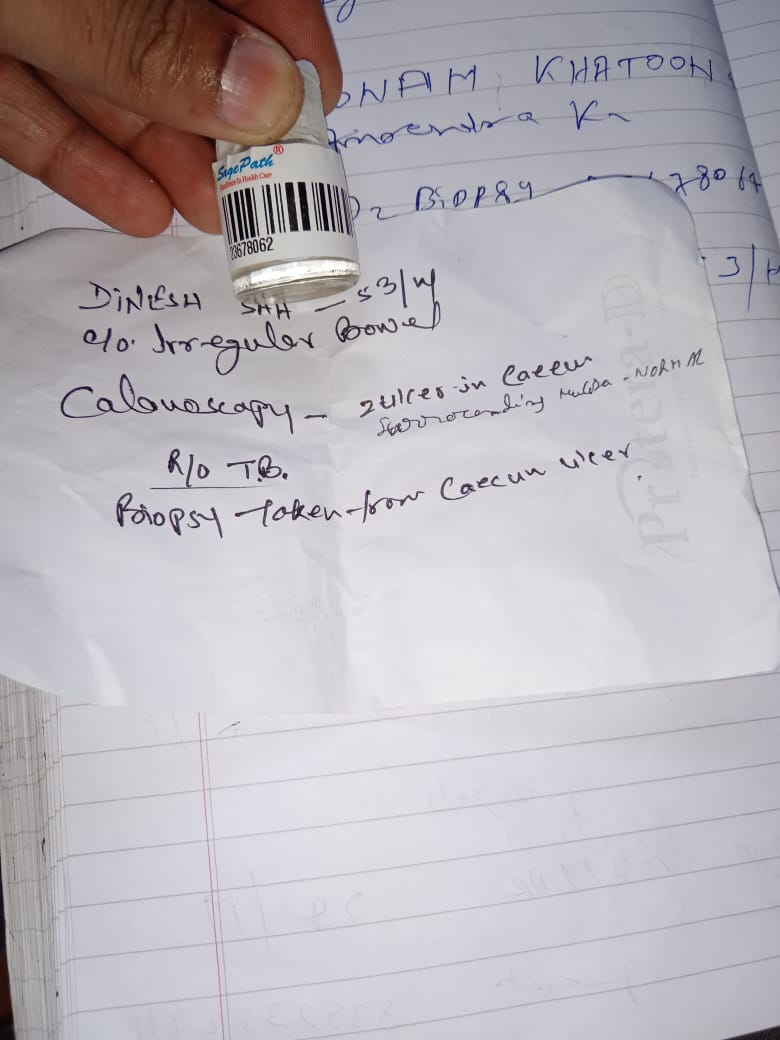 KHATOON
Biopsy
SagePath®
Excellence In Health Care
23678062
3/
DINESH SAH – 53/M
c/o. Irregular Bowel
Colonoscopy – 2 ulcer in Caecum
Surrocanding Mucosa - NORMAL
R/o T.B.
Biopsy taken from Caecun ulcer.